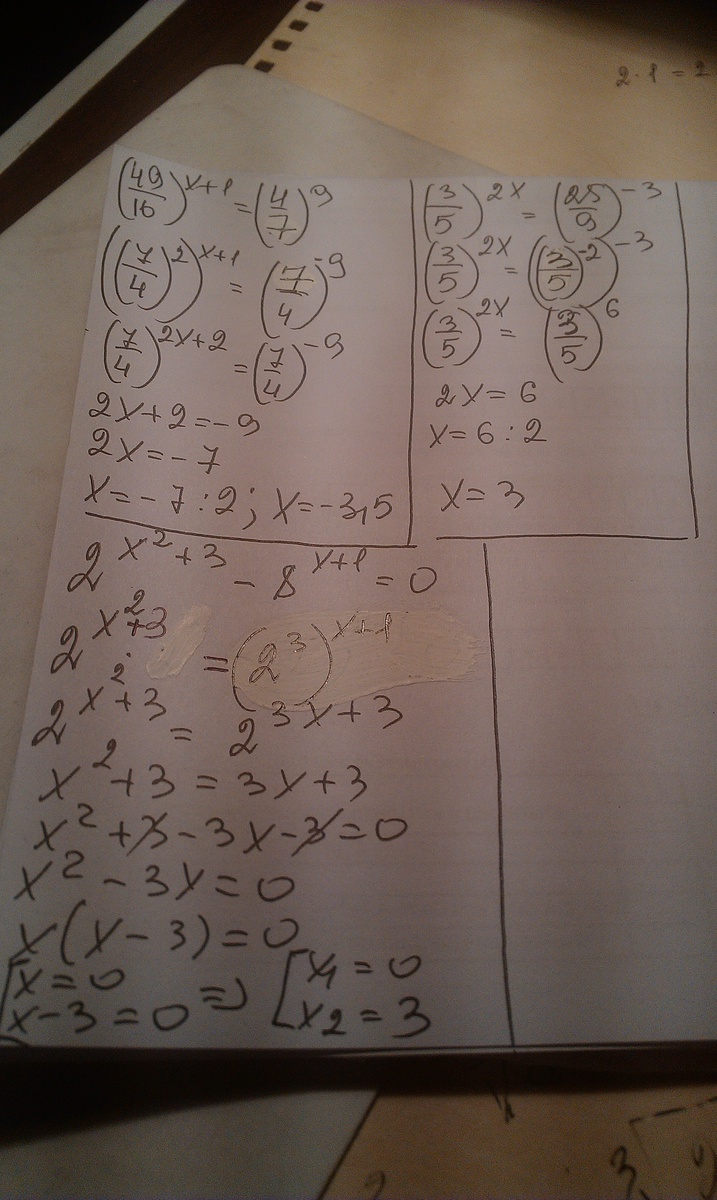 2·1=2
(49/16)^(x+1) = (4/7)^9
((7/4)^2)^(x+1) = (7/4)^-9
(7/4)^(2x+2) = (7/4)^-9
2x+2=-9
2x=-7
x=-7:2; x=-3,5
(3/5)^(2x) = (25/9)^-3
(3/5)^(2x) = ((3/5)^-2)^-3
(3/5)^(2x) = (3/5)^6
2x=6
x=6:2
x=3
2^(x²+3) - 8^(x+1) = 0
2^(x²+3) = (2^3)^(x+1)
2^(x²+3) = 2^(3x+3)
x²+3=3x+3
x²+3-3x-3=0
x²-3x=0
x(x-3)=0
[x=0 => [x₁=0
x-3=0 x₂=3